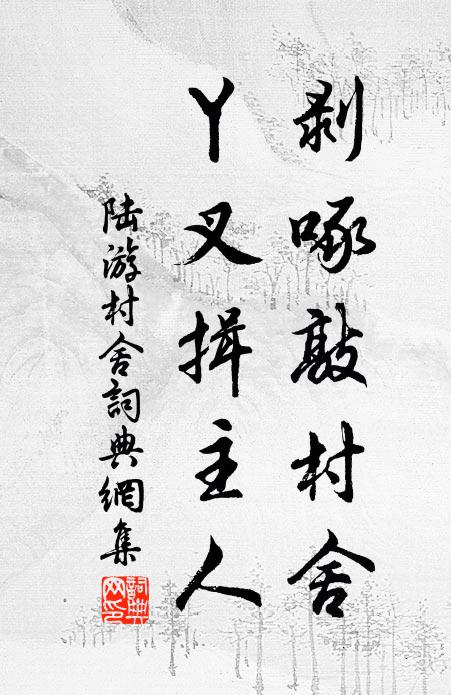 剥啄敲村舍
丫叉揖主人
陆游村舍詞典網集
詞典网印